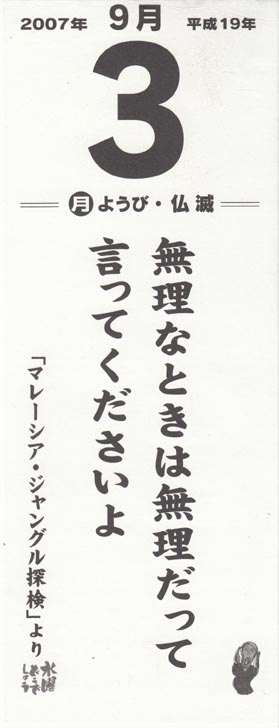 2007年 9月 平成19年
3
月ようび・仏滅
無理なときは無理だって
言ってくださいよ
「マレーシア・ジャングル探検」より
水曜
どうで
しょう